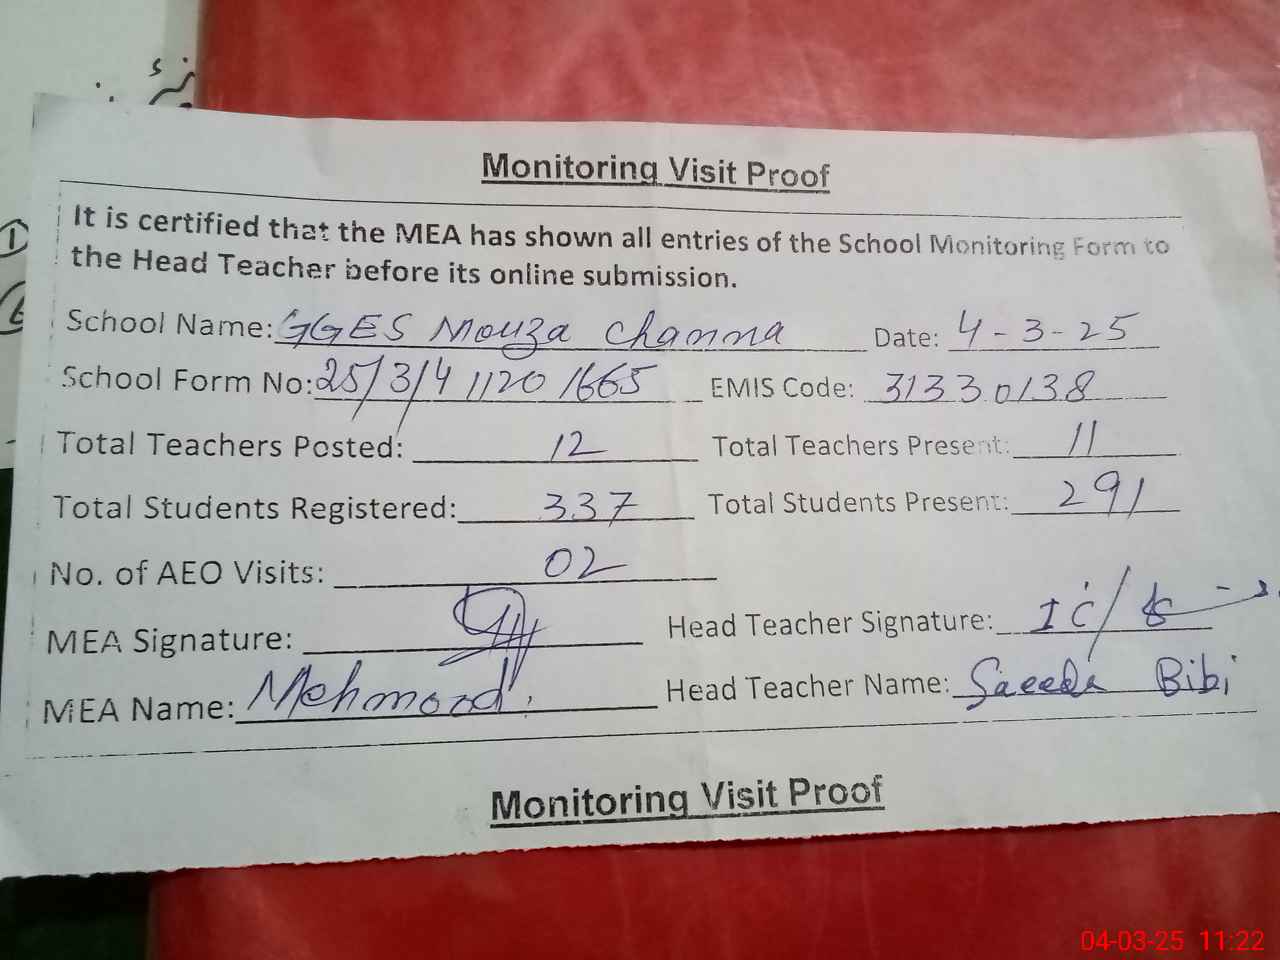 Monitoring Visit Proof
It is certified that the MEA has shown all entries of the School Monitoring Form to
the Head Teacher before its online submission.
School Name: GGES Mouza Channa Date: 4-3-25
School Form No: 25/3/4 1120 1665 EMIS Code: 31330138
Total Teachers Posted: 12 Total Teachers Present: 11
Total Students Registered: 337 Total Students Present: 291
No. of AEO Visits: 02
MEA Signature: Head Teacher Signature: I C/
MEA Name: Mehmood Head Teacher Name: Saeeda Bibi
Monitoring Visit Proof
04-03-25 11:22